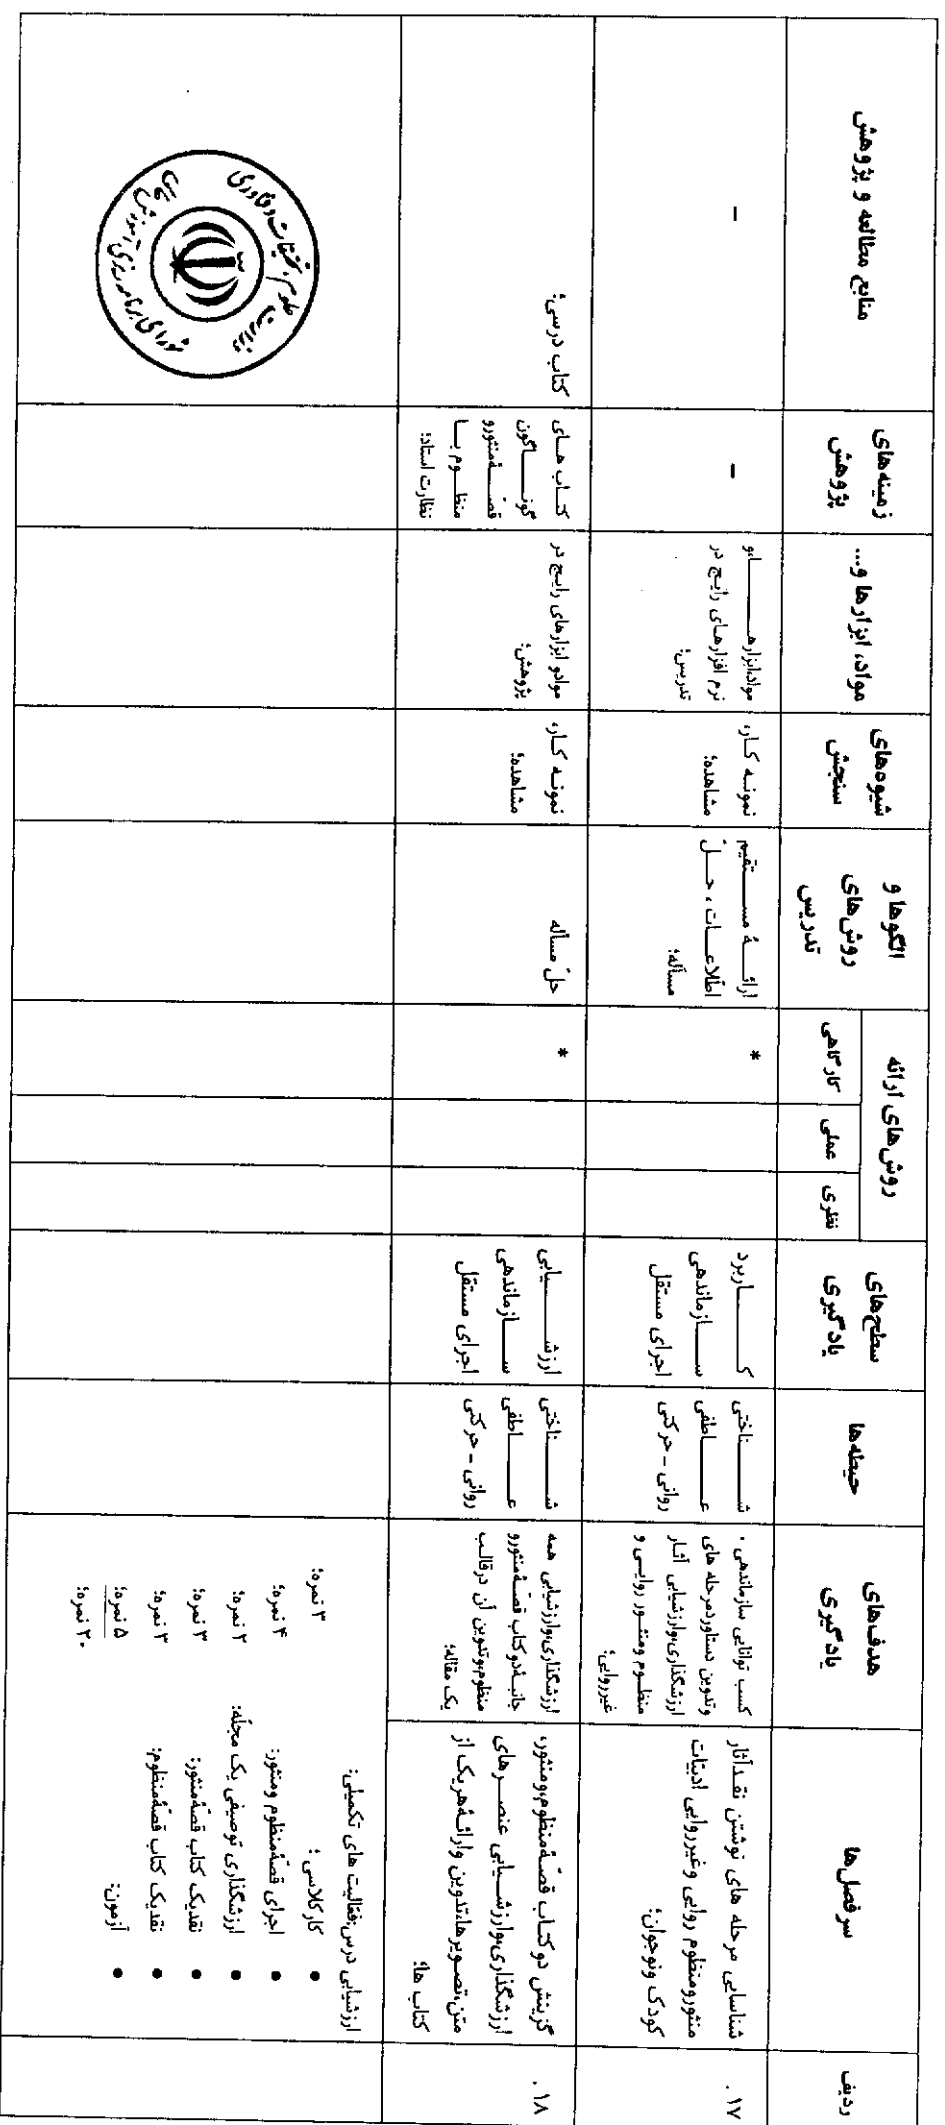 ردیف
سرفصل‌ها
هدف‌های
یادگیری
حیطه‌ها
سطح‌های
یادگیری
روش‌های ارائه
نظری
عملی
کارگاهی
الگوها و
روش‌های
تدریس
شیوه‌های
سنجش
مواد، ابزارها و...
زمینه‌های
پژوهش
منابع مطالعه و پژوهش
۱۷ .
شناسایی مرحله های نوشتن نقدآثار
منثورومنظوم روایی وغیرروایی ادبیّات
کودک ونوجوان؛
کسب توانایی سازماندهی ،
وتدوین دستاوردمرحله های
ارزشگذاری‌وارزشیابی آثـار
منظـوم ومنثـور روایـی و
غیرروایی؛
شـــــناختی
عـــــاطفی
روانی - حرکتی
کـــــاربرد
ســـازماندهی
اجرای مستقل
*
ارائـــۀ مســـتقیم
اطّلاعـــات ، حـــلّ
مسأله؛
نمونـه کـار،
مشاهده؛
مواد،ابزارهـــــاو
نرم افزارهـای رایـج در
تدریس؛
-
-
۱۸ .
گزینش دوکتـاب قصـّۀمنظوم‌ومنثور،
ارزشگذاری‌وارزشـــیابی عنصـــرهای
متن،تصـویرها،تدوین وارائـۀهریک از
کتاب ها؛
ارزشگذاری‌وارزشیابی همه
جانبـۀدوکتاب قصـّۀمنثورو
منظوم‌وتدوین آن درقالـب
یک مقاله؛
شـــــناختی
عـــــاطفی
روانی - حرکتی
ارزشـــــیابی
ســـازماندهی
اجرای مستقل
*
حلّ مسأله
نمونـه کـار،
مشاهده؛
موادو ابزارهای رایـج در
پژوهش؛
کتـاب هـای
گونـــــاگون
قصـّـۀمنثورو
منظـــوم بـــا
نظارت استاد؛
کتاب درسی؛
ارزشیابی درس،فعّالیت های تکمیلی:
• کارکلاسی : ۳ نمره؛
• اجرای قصّۀمنظوم ومنثور: ۴ نمره؛
• ارزشگذاری توصیفی یک مجلّه: ۲ نمره؛
• نقدیک کتاب قصّۀمنثور: ۳ نمره؛
• نقدیک کتاب قصّۀمنظوم: ۳ نمره؛
• آزمون: ۵ نمره؛
۲۰ نمره؛
وزارت علوم، تحقیقات و فناوری
شورای برنامه ریزی آموزش عالی